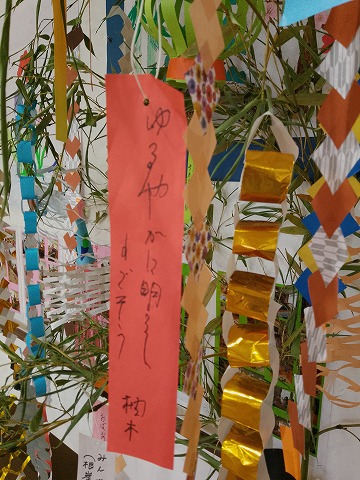 ゆるやかに明るく
すごそう
柚木
みん